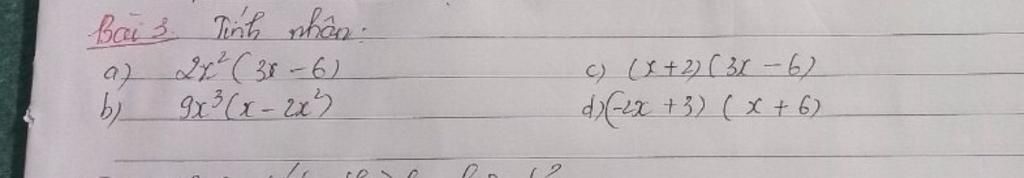 Bài 3. Tính nhân.
a) 2x² (3x - 6)
c) (x+2) (3x - 6)
b) 9x³ (x - 2x²)
d) (-2x + 3) (x + 6)